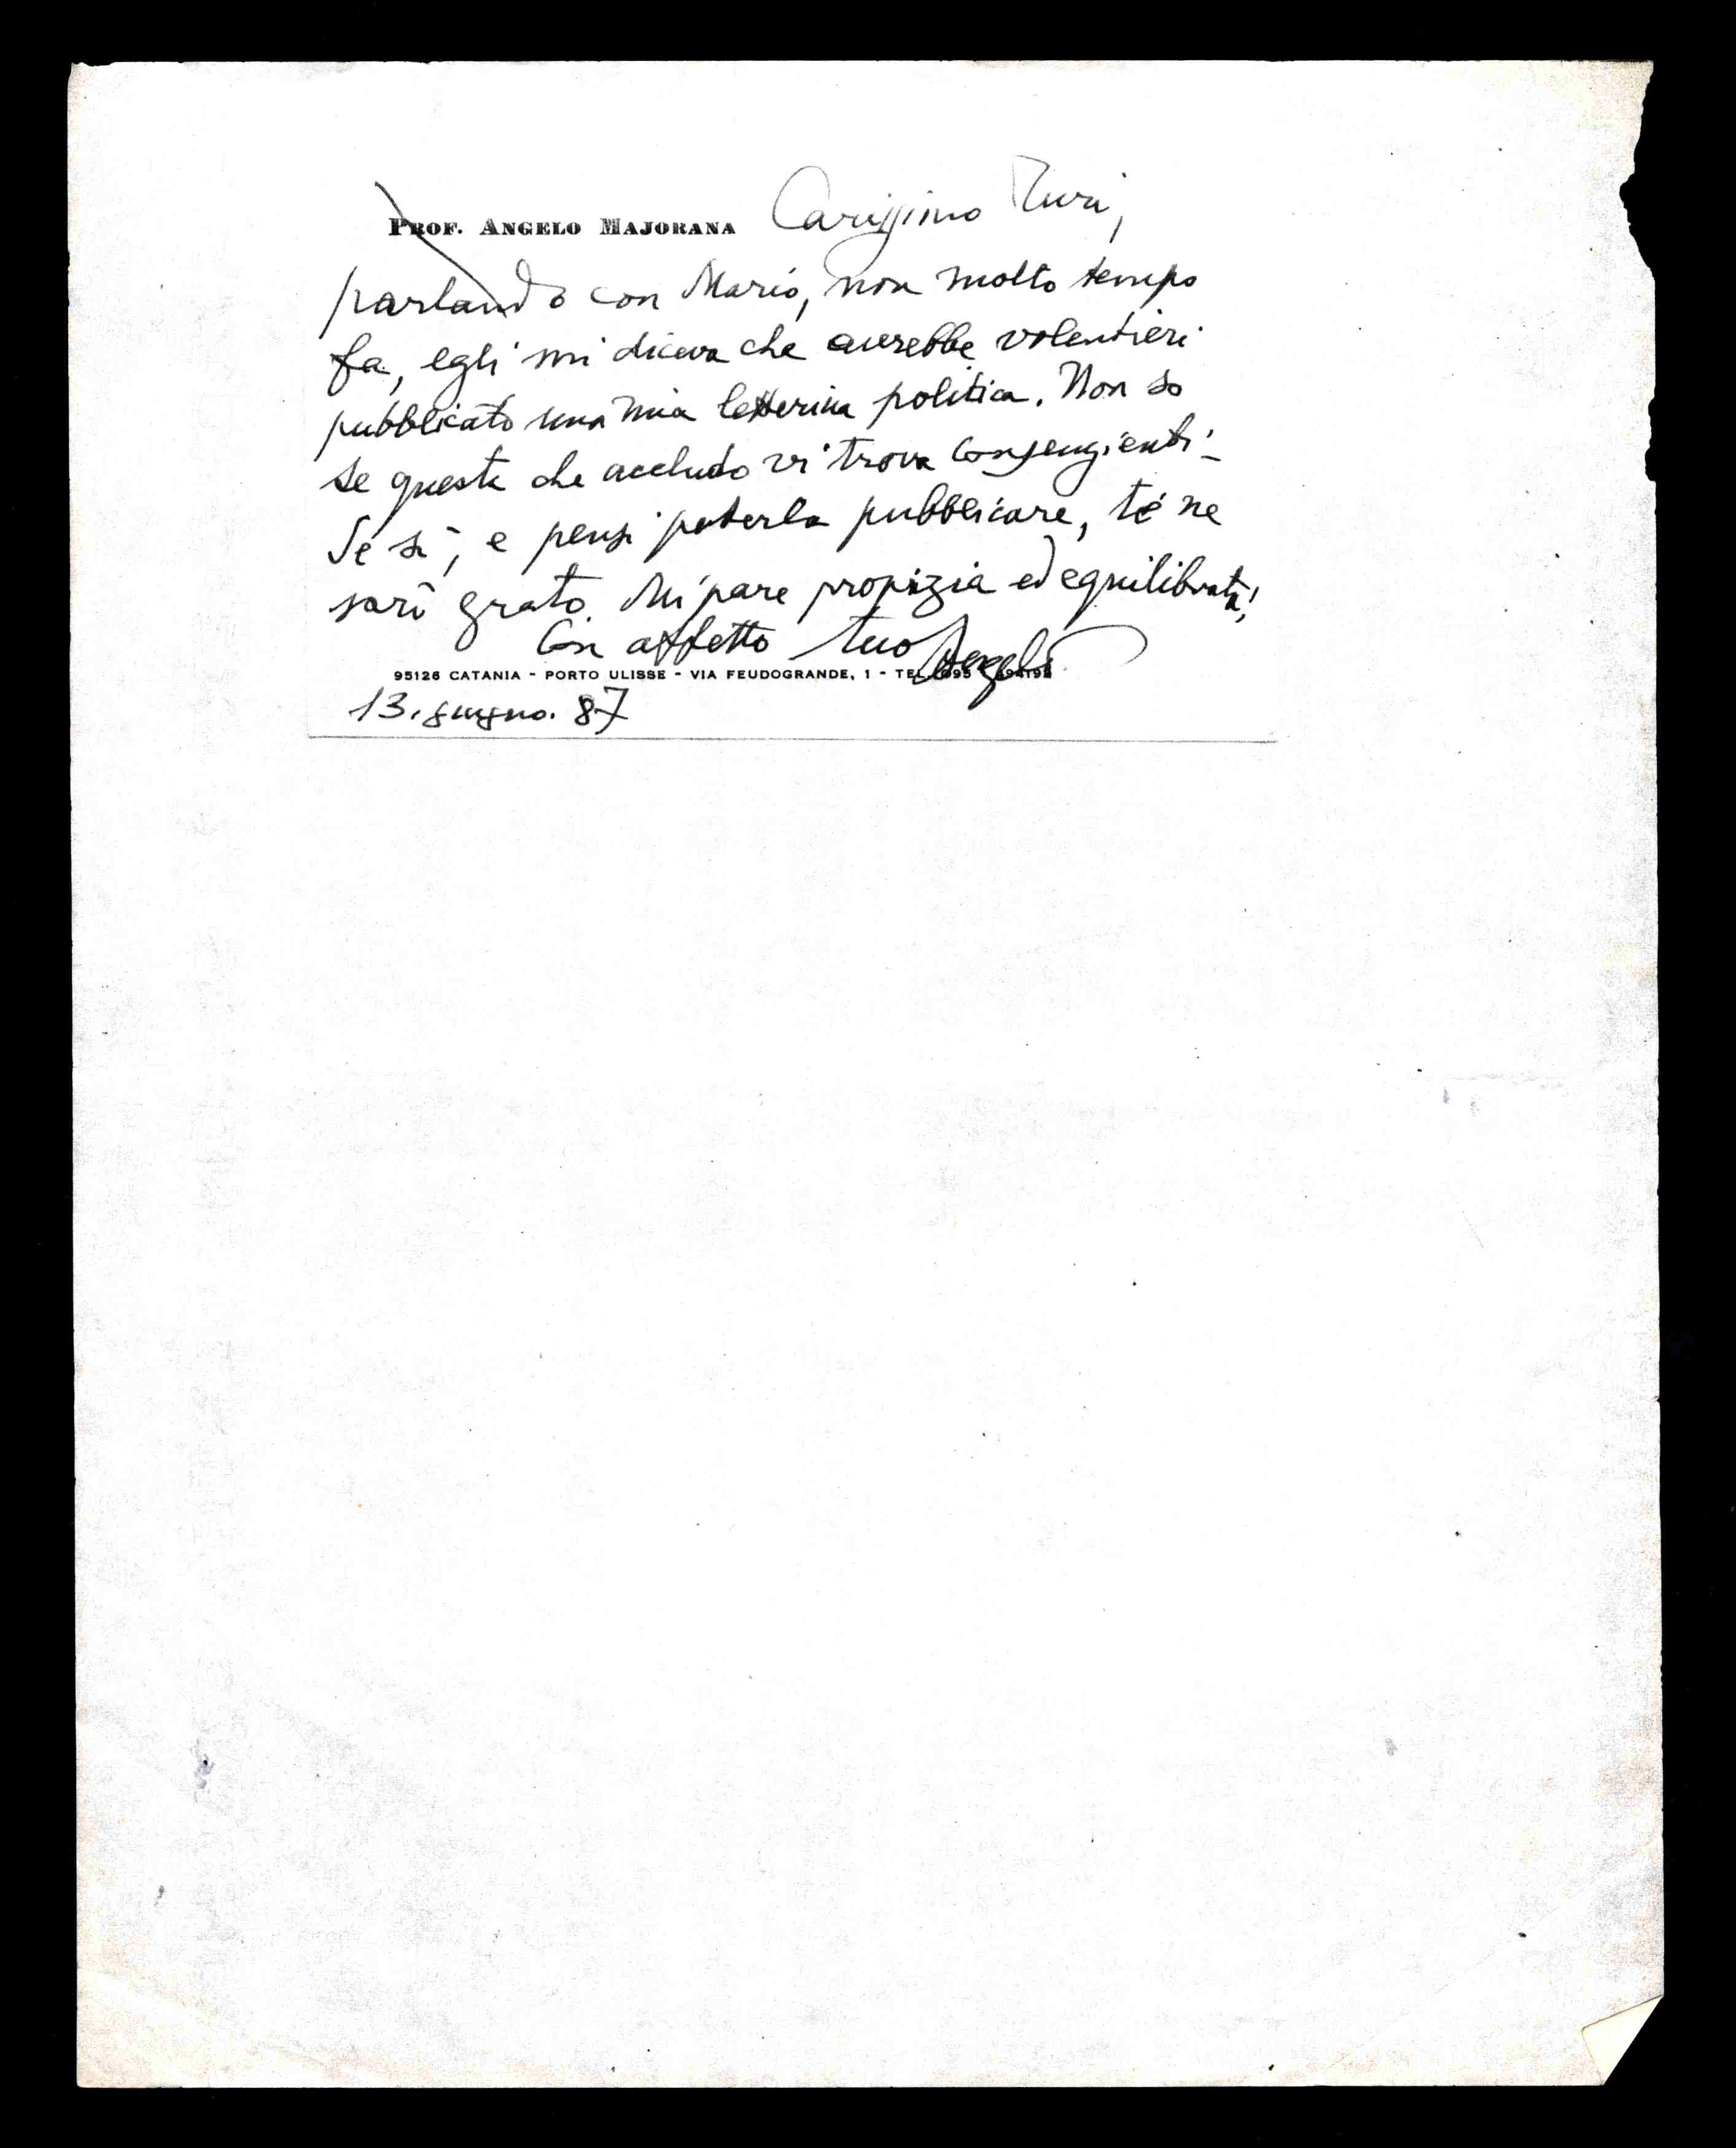 PROF. ANGELO MAJORANA Carissimo Turi,
parlando con Mario, non molto tempo
fa, egli mi diceva che averebbe volentieri
pubblicato una mia letterina politica. Non so
se questa che accludo vi trova consenzienti.
Se sì, e pensi poterla pubblicare, te ne
sarò grato. Mi pare propizia ed equilibrata!
Con affetto tuo Angelo
95126 CATANIA - PORTO ULISSE - VIA FEUDOGRANDE, 1 - TEL. 095
13. giugno. 87